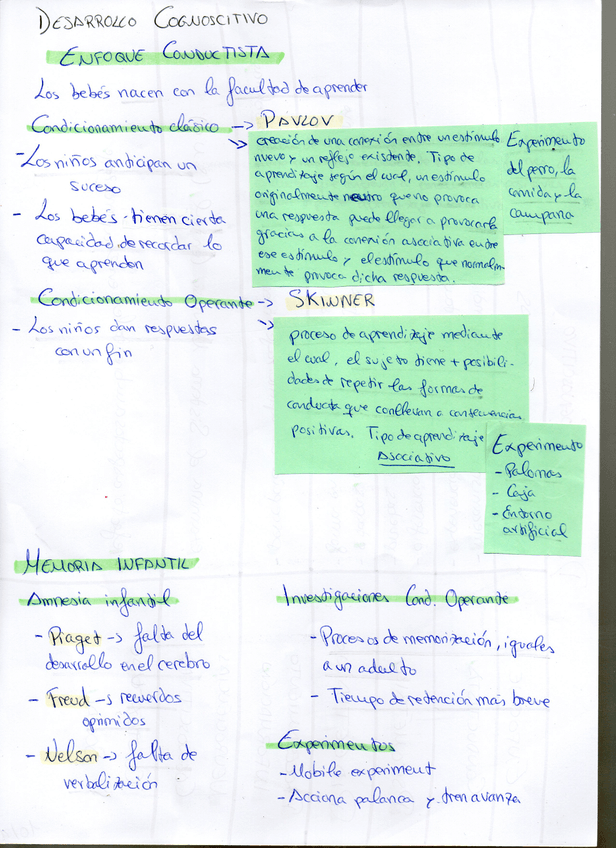 DESARROLLO COGNOSCITIVO
ENFOQUE CONDUCTISTA
Los bebés nacen con la facultad de aprender
Condicionamiento clásico -> PAVLOV
- Los niños anticipan un
suceso
- Los bebés tienen cierta
capacidad de recordar lo
que aprenden
creación de una conexión entre un estímulo
nuevo y un reflejo existente. Tipo de
aprendizaje según el cual, un estímulo
originalmente neutro que no provoca
una respuesta puede llegar a provocarla
gracias a la conexión asociativa entre
ese estímulo y el estímulo que normalm
mente provoca dicha respuesta.
Experimento
del perro, la
comida y la
campana
Condicionamiento Operante -> SKINNER
- Los niños dan respuestas
con un fin
proceso de aprendizaje mediante
el cual, el sujeto tiene + posibili-
dades de repetir las formas de
conducta que conllevan a consecuencias
positivas. Tipo de aprendizaje
Asociativo
Experimento
- Palomas
- Caja
- Entorno
artificial
MEMORIA INFANTIL
Amnesia infantil
- Piaget -> falta del
desarrollo en el cerebro
- Freud -> recuerdos
oprimidos
- Nelson -> falta de
verbalización
Investigaciones Cond. Operante
- Procesos de memorización, iguales
a un adulto
- Tiempo de retención más breve
Experimentos
- Mobile experiment
- Acciona palanca y tren avanza